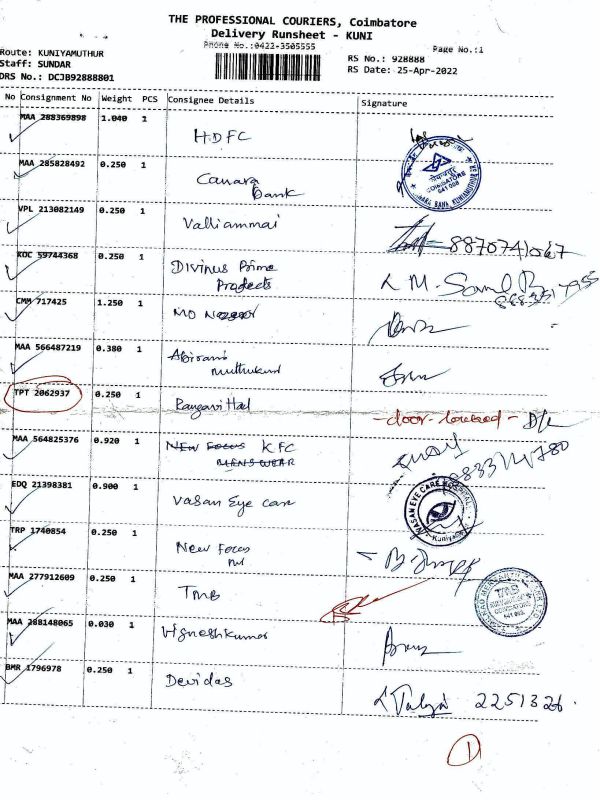 THE PROFESSIONAL COURIERS, Coimbatore
Delivery Runsheet - KUNI
Phone No.:0422-3505555
Page No.:1
Route: KUNIYAMUTHUR
Staff: SUNDAR
DRS No.: DCJB92888801
RS No.: 928888
RS Date: 25-Apr-2022
No Consignment No Weight PCS Consignee Details Signature
MAA 288369898 1.040 1
HDFC
MAA 285828492 0.250 1
Canara
Bank
COIMBATORE
641 008
VPL 213082149 0.250 1
Valliammai
8870741067
KOC 59744368 0.250 1
Divinus Prime
Products
CMM 717425 1.250 1
MD
MAA 566487219 0.380 1
Abirami
muthukumar
TPT 2062937 0.250 1
Ranganvittal
-door-locked- D/L
MAA 564825376 0.920 1
NEW FOCUS KFC
MENS WEAR
EDQ 21398381 0.900 1
Vasan Eye care
VASAN EYE CARE HOSPITAL
Kuniyamuthur
TRP 1740854 0.250 1
New Focus
MAA 277912609 0.250 1
TMB
TMB
COIMBATORE
MAA 288148065 0.030 1
Vigneshkumar
BMR 1796978 0.250 1
Devidas
2251326
1